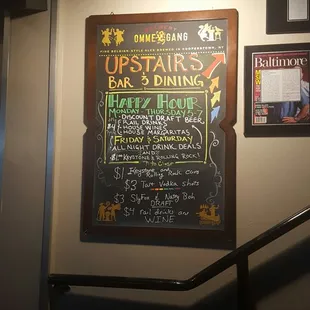 OMMEGANG
FINE BELGIAN-STYLE ALES BREWED IN COOPERSTOWN, NY
UPSTAIRS
BAR & DINING
HAPPY HOUR
MONDAY-THURSDAY 5-7
$1 DISCOUNT DRAFT BEER
RAIL DRINKS
HOUSE WINES
HOUSE MARGARITAS
FRIDAY & SATURDAY
ALL NIGHT DRINK DEALS
AND
KEYSTONE & ROLLING ROCK!
$1 Keystone and
Rolling Rock cans
$3 Tart Vodka shots
$3 SlyFox & Natty Boh
DRAFT
$4 rail drinks and
WINE
Baltimore